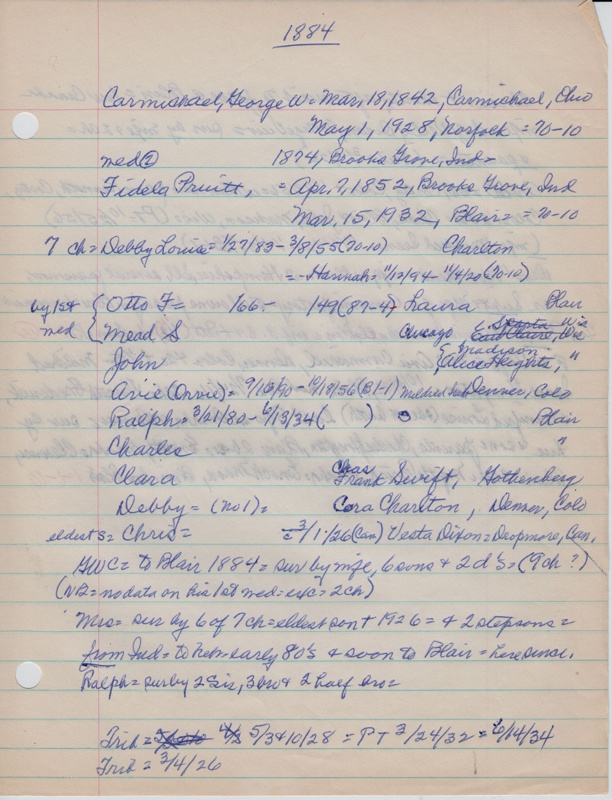 1884
Carmichael, George W = Mar, 18, 1842, Carmichael, Ohio
May 1, 1928, Norfolk = 70-10
med② 1874, Brooks Grove, Ind =
Fidela Pruitt, = Apr. 7, 1852, Brooks Grove, Ind
Mar. 15, 1932, Blair = = 70-10
7 ch = Debby Louise = 1/27/83 - 3/8/55 (70-10) Charlton
= - Hannah = 11/12/94 - 11/4/20 (70-10)
by 1st med { Otto F = 166 - 149 (87-4) Laura Blair
Mead S Chicago Sparta Wis
Eau Claire, Wis
John Madison Heights, "
Alice
Arie (Orvie) = 9/16/90 - 10/13/56 (81-1) Denver, Colo
Ralph = 3/21/80 - 6/13/34 ( ) Blair
Charles "
Clara Chas Frank Swift, Gothenberg
Debby = (No 1) = Cora Charlton, Denver, Colo
eldest s = Chris = c 3/1-/26 (Can) Vesta Dixon = Dropmore, Can.
GWC = to Blair 1884 = sur by wife, 6 sons & 2 d's = (9 ch ?)
(NB = no data on his 1st med = exc = 2 ch)
Mrs = sur by 6 of 7 ch = eldest son + 1926 = & 2 stepsons =
from Ind = to Neb = early 80's & soon to Blair = here since.
Ralph = sur by 2 sis, 3 bro & 2 half bro =
Trib = 5/3 & 10/28 = PT 3/24/32 = 6/14/34
Trib = 3/4/26